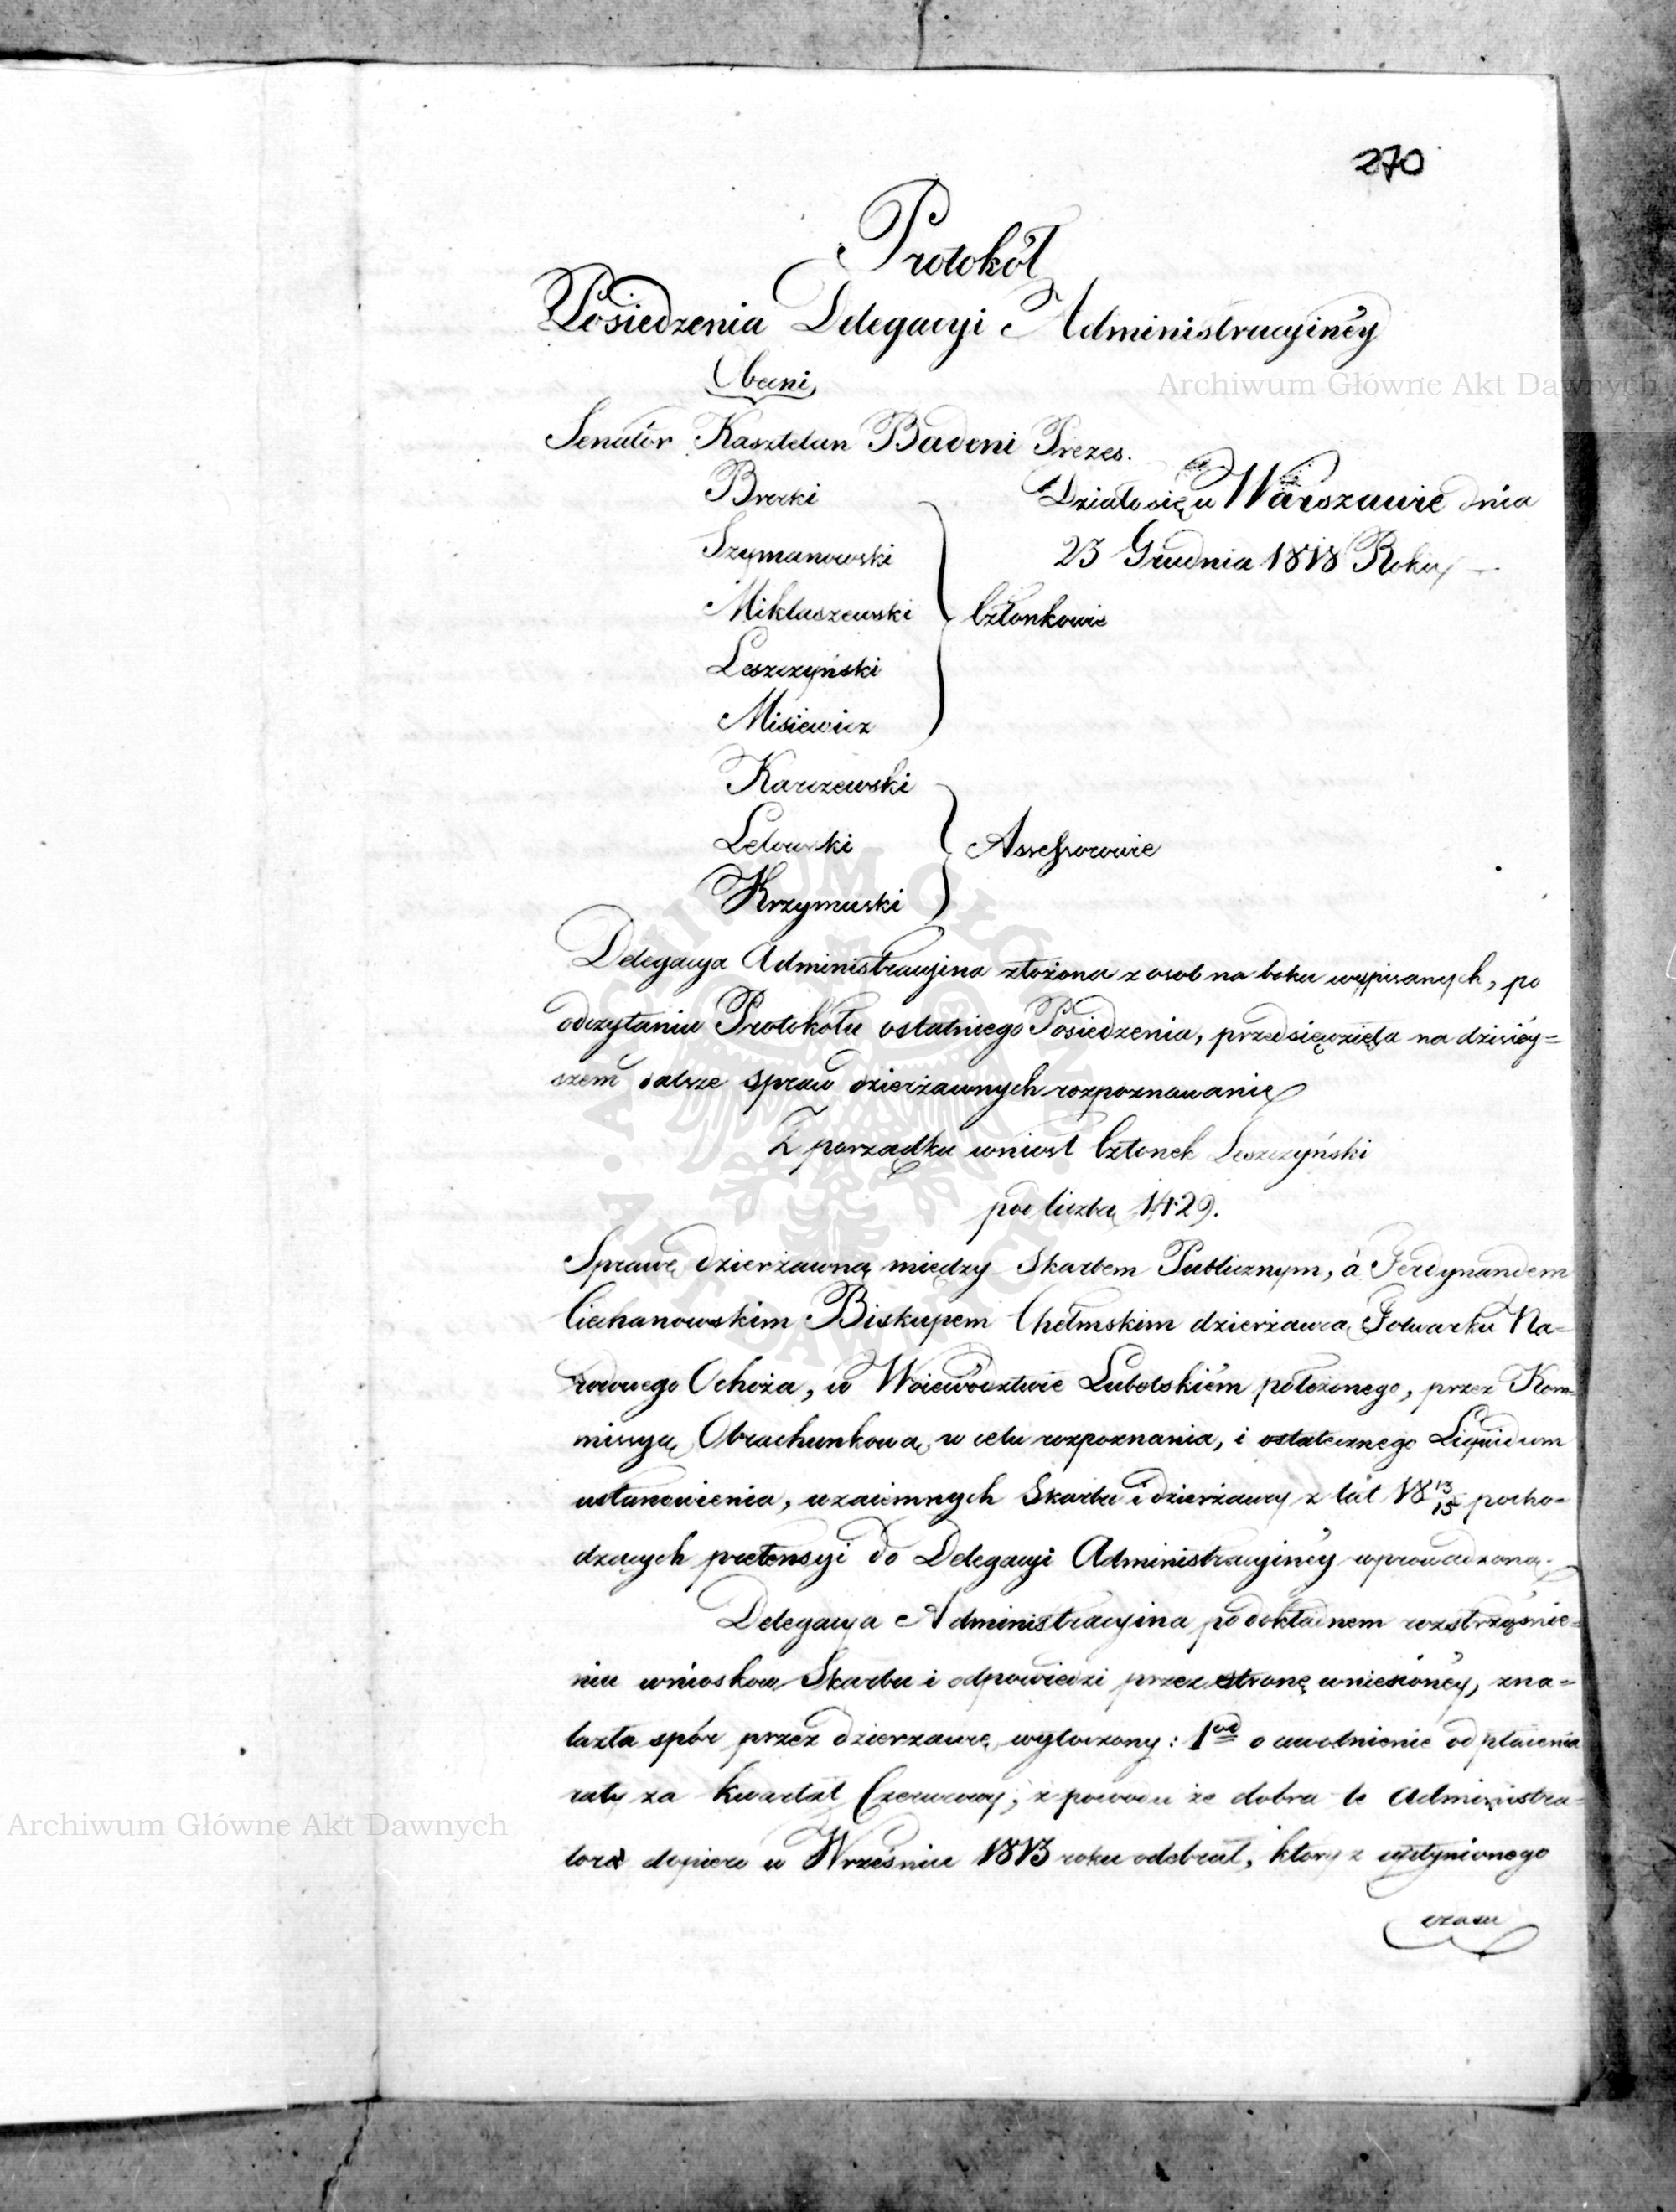 270
Protokół
Posiedzenia Delegacyi Administracyinéy
Obecni,
Archiwum Główne Akt Dawnych
Senator Kasztelan Badeni Prezes.
Działo się w Warszawie dnia
23 Grudnia 1818 Roku
Brocki
Szymanowski
Mikłaszewski Członkowie
Leszczyński
Misiewicz
Karczewski
Lelowski Assessorowie
Krzymuski
Delegacya Administracyina złożona z osob na boku wypisanych, po
odczytaniu Protokołu ostatniego Posiedzenia, przedsięwzięła na dzisiéy=
szem dalsze spraw dzierżawnych rozpoznawanie
Z porządku wniosł Członek Leszczyński
pod liczbą 1429.
Sprawę dzierżawną między Skarbem Publicznym, à Ferdynandem
Ciechanowskim Biskupem Chełmskim dzierżawcą Folwarku Na=
rodowego Ochoża, w Woiewództwie Lubelskiém położonego, przez Kom=
missyą Obrachunkową w celu rozpoznania, i ostatecznego Liquidum
ustanowienia, wzaiemnych Skarbu i dzierżawcy z lat 18 13/15 pocho=
dzących pretensyi do Delegacyi Administracyinéy wprowadzoną.
Delegacya Administracyina po dokładnem roztrząśnie=
niu wniosków Skarbu i odpowiedzi przez stronę wniesionéy, zna=
lazła spór przez dzierzawcę wytoczony: 1od o uwolnienie od płacenia
raty za kwartał Czerwcowy, z powodu że dobra te Administra=
tor dopiero w Wrześniu 1813 roku odebrał, ktory z upłynionego
Archiwum Główne Akt Dawnych
czasu
ARCHIWUM GŁÓWNE AKT DAWNYCH